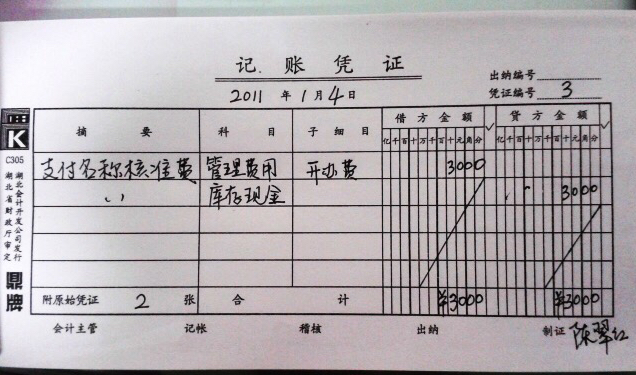 记 账 凭 证
2011 年 1 月 4 日
出纳编号
凭证编号 3
C305
湖北省财政厅审定
湖北会计开发公司发行
鼎牌
摘 要 科 目 子细目 借方金额 贷方金额
亿千百十万千百十元角分 亿千百十万千百十元角分
支付名称核准费 管理费用 开办费 3000
〃 库存现金 3000
附原始凭证 2 张 合 计 ¥3000 ¥3000
会计主管 记帐 稽核 出纳 制证 陈翠红